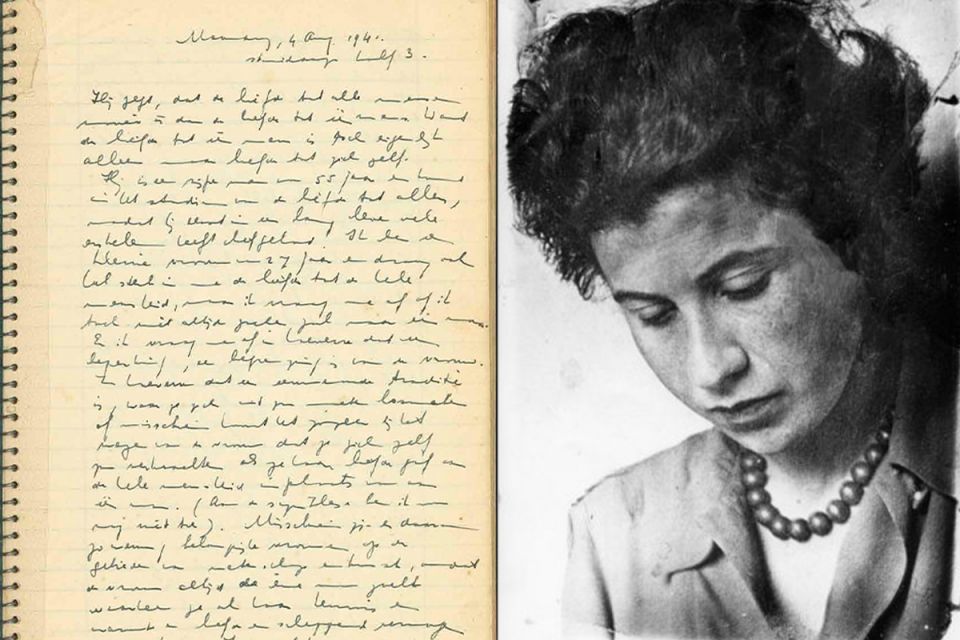 Maandag, 4 Aug. 1941.
's middags half 3.
Hij zegt, dat de liefde tot alle mensen
mooier is dan de liefde tot één mens. Want
de liefde tot één mens is toch eigenlijk
alleen maar liefde tot zich zelf.
Hij is een rijpe man van 55 jaar en komt
in het stadium van de liefde tot allen,
nadat hij eerst in een lang leven vele
enkelen heeft liefgehad. Ik ben een
kleine vrouw van 27 jaar en draag ook
heel sterk in me de liefde tot de hele
mensheid, maar ik vraag me af of ik
toch niet altijd zoeken zal naar één man.
En ik vraag me af in hoeverre dat een
beperking, een begrenzing is van de vrouw.
In hoeverre dat een eeuwenoude traditie
is, waar ze zich uit zou moeten losmaken
of misschien hoort het zozeer bij het
wezen van de vrouw dat ze zich zelf
zou verkrachten als ze haar liefde gaf aan
de hele mensheid in plaats van aan
één man. (Aan de synthese ben ik nog
niet toe). Misschien zijn er daarom
zo weinig belangrijke vrouwen op de
gebieden van wetenschap en kunst, omdat
de vrouw altijd de éne man zoekt